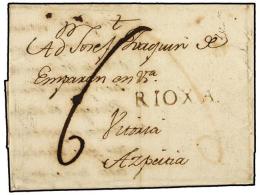 A Dn Josef Joaquin de
Emparan en Va
RIOXA
6
Vitoria
Azpeitia